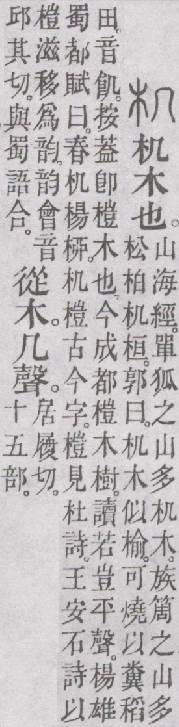 机 机木也。
山海經。單狐之山多机木。族之山多
松柏机桓。郭曰。机木似榆。可燒以糞稻
田。音飢。按葢卽榿木也。今成都榿木樹。讀若豈平聲。楊雄
蜀都賦曰。春机楊桺。机榿古今字。榿見杜詩。王安石詩以
榿滋移爲韵。韵會音
邱其切。與蜀語合。
從木。几聲。
居履切。
十五部。